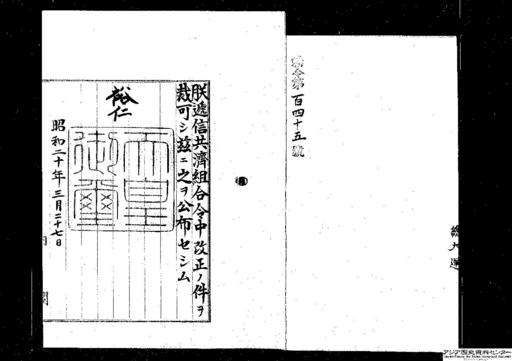 勅令第百四十五號
朕遞信共濟組合令中改正ノ件ヲ
裁可シ茲ニ之ヲ公布セシム
裕仁
天皇
御璽
昭和二十年三月二十七日
アジア歴史資料センター